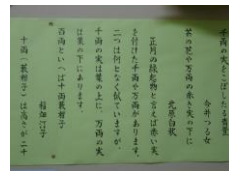 千両の実をこぼしたる青畳
今井つる女
茶の花や万両の赤き実の下に
北原白秋
正月の縁起物と言えば赤い実
を付けた千両や万両があります。
二つは何となく似ていますが、
千両の実は葉の上に、万両の実
は葉の下にあります。
百両といへば十両藪柑子
稲畑汀子
十両(藪柑子)は高さが二十